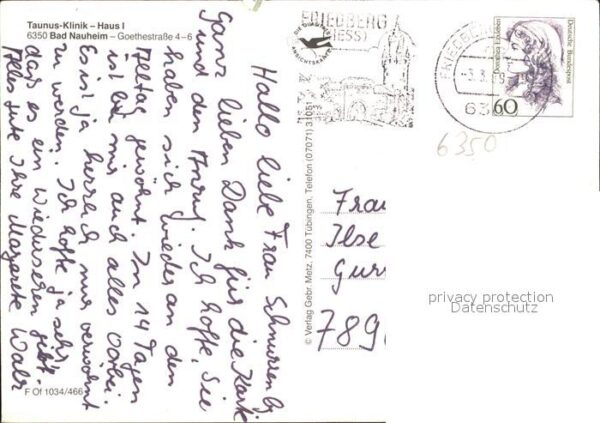 Taunus-Klinik – Haus I
6350 Bad Nauheim – Goethestraße 4–6
Hallo liebe Frau
Ganz lieben Dank für die Karte
und den Anruf. Ich hoffe, Sie
haben sich wieder an den
Alltag gewöhnt. In 14 Tagen
ist bei mir auch alles vorbei.
Es ist ja herrlich nur verwöhnt
zu werden. Ich hoffe ja sehr,
das es ein Wiedersehen gibt.
Alles Gute Ihre Margarete
F Of 1034/466
© Verlag Gebr. Metz, 7400 Tübingen, Telefon (07071) 31051
FRIEDBERG
(HESS)
ANSICHTSKARTE
FRIEDBERG
-3.3.
63
Dorothea Erxleben
Deutsche Bundespost
60
6350
Frau
Ilse
Gur
789
privacy protection
Datenschutz